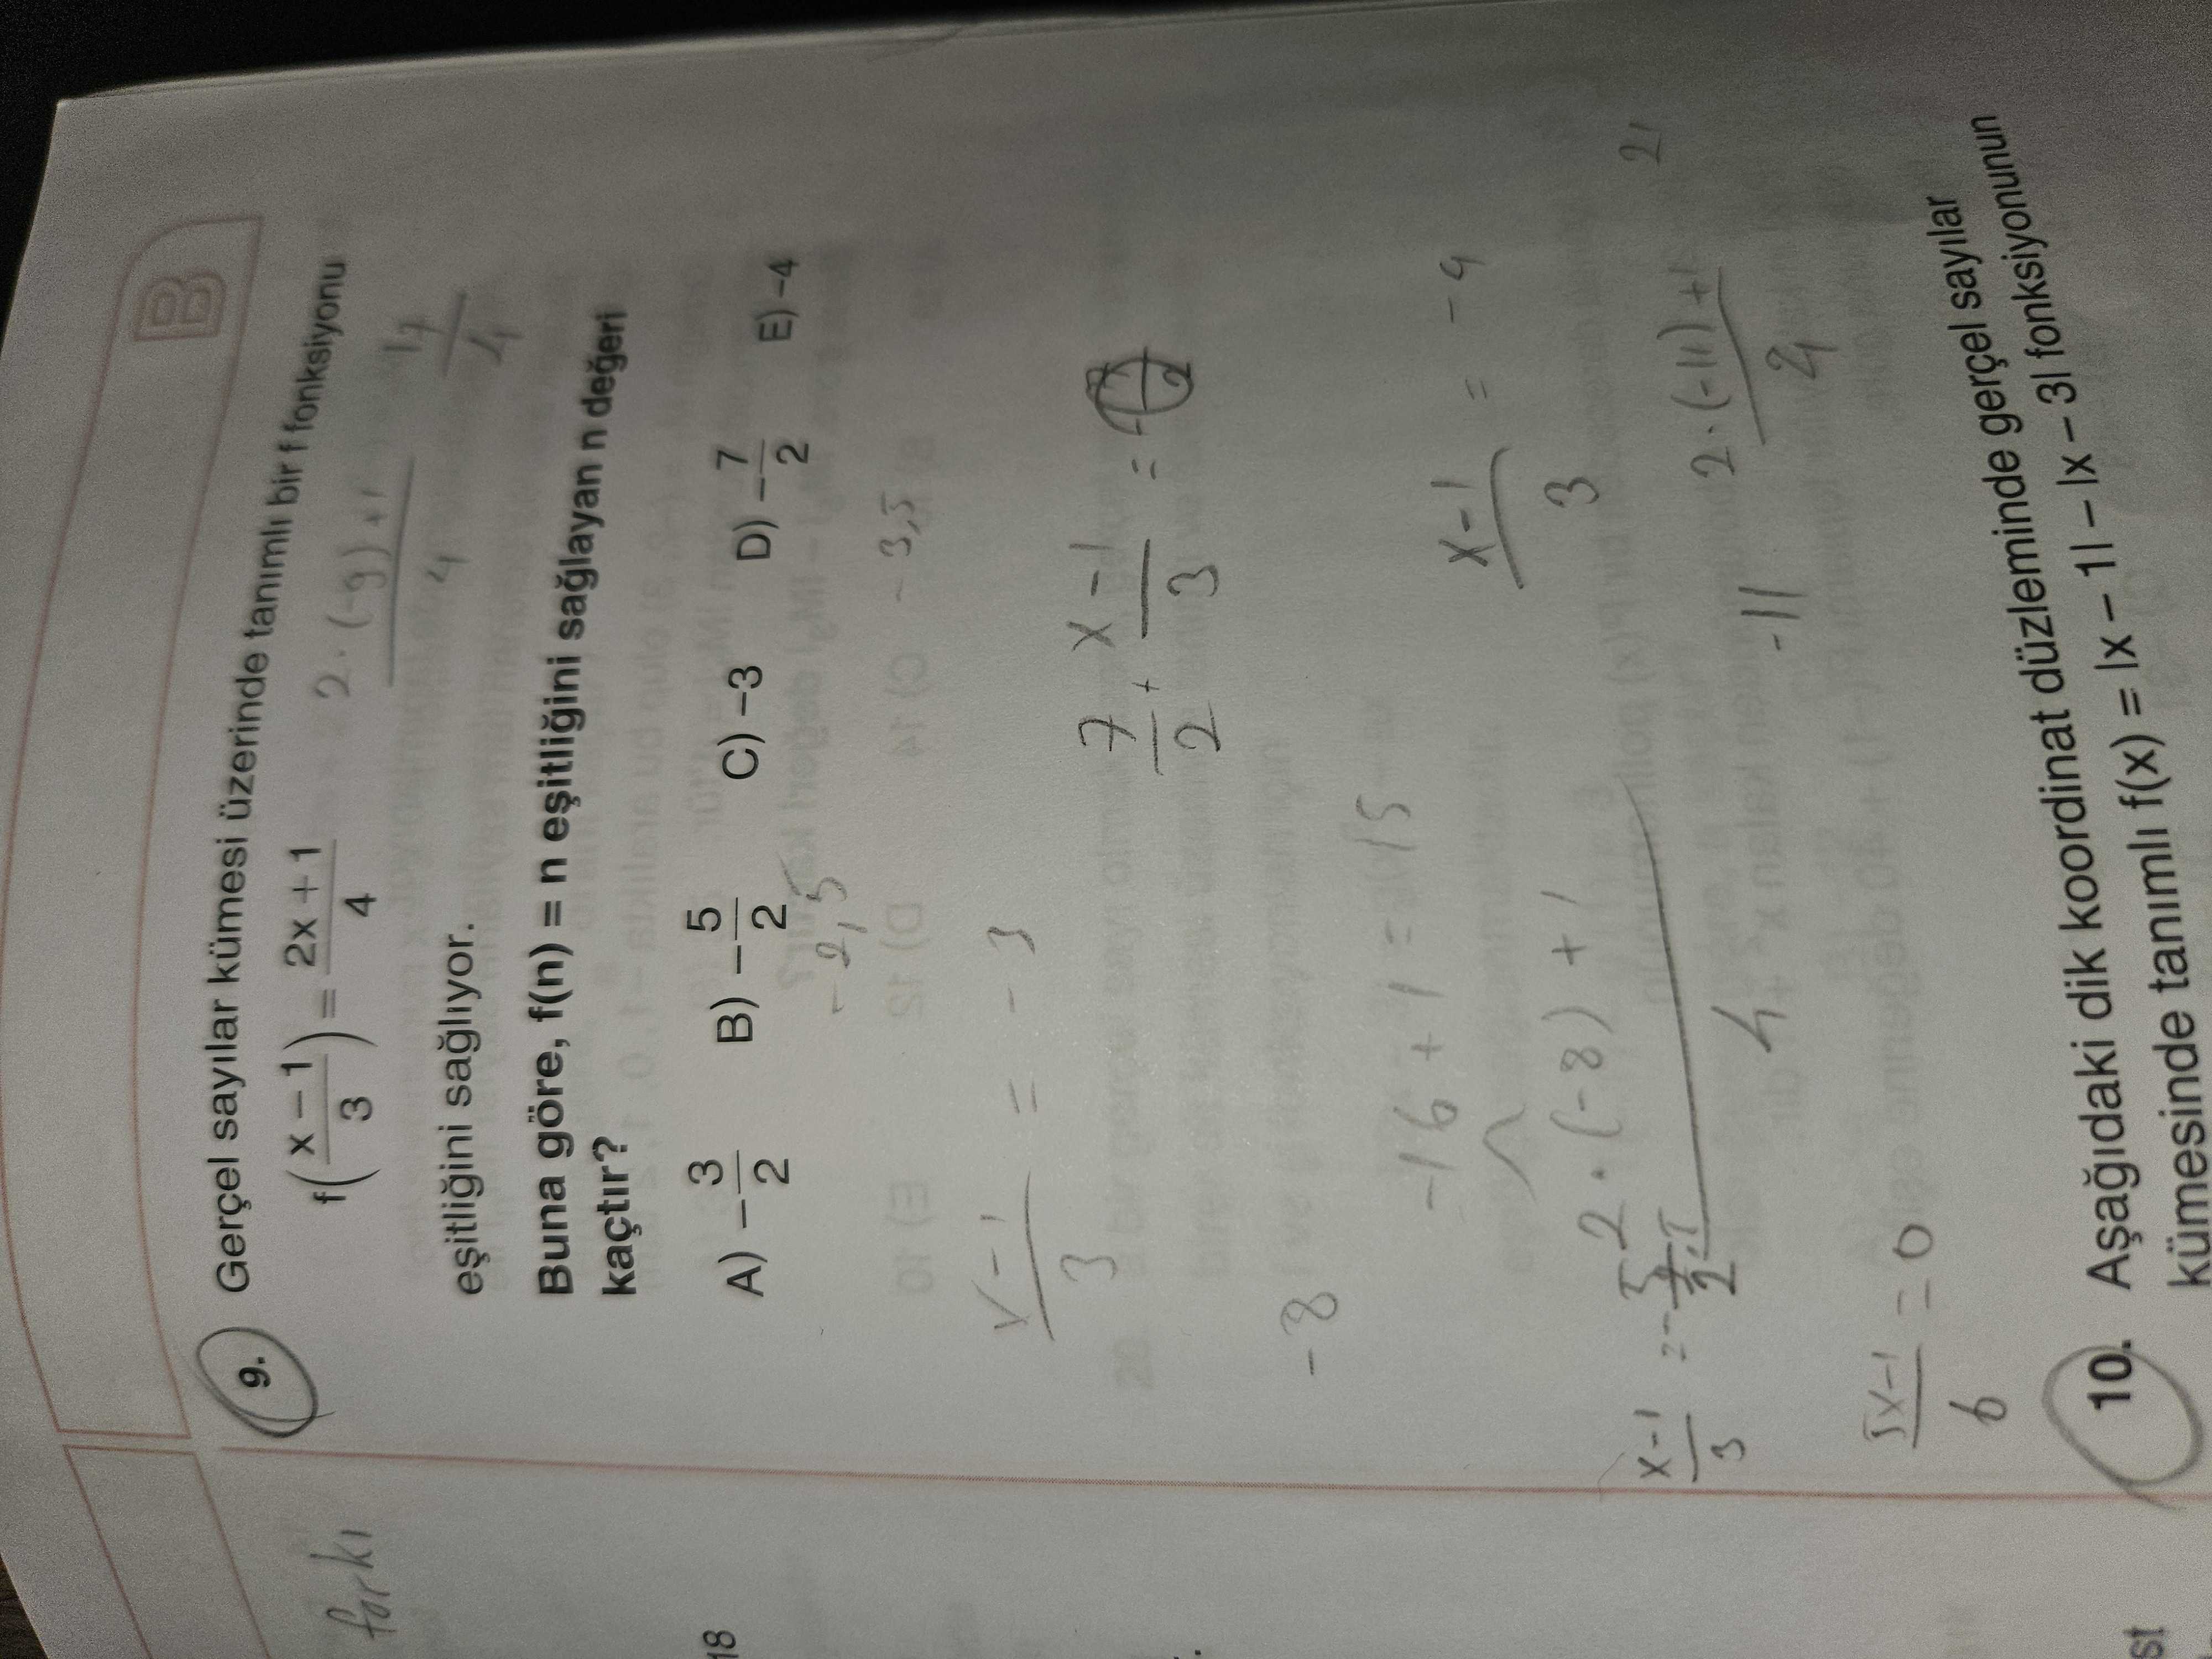 B
9. Gerçel sayılar kümesi üzerinde tanımlı bir f fonksiyonu
f((x − 1)/3) = (2x + 1)/4
2·(-9)+1
4
17
4
eşitliğini sağlıyor.
Buna göre, f(n) = n eşitliğini sağlayan n değeri
kaçtır?
A) −3/2 B) −5/2 C) −3 D) −7/2 E) −4
-2,5
-3,5
x-1/3 = -3
7/2 + x-1/3 = -7/2
-8
-16+1=-15
x-1/3 = -9
2·(-8)+1
4
2·(-11)+1
4
21
-11
x-1/3
= 0
6
10. Aşağıdaki dik koordinat düzleminde gerçel sayılar
kümesinde tanımlı f(x) = |x − 1| − |x − 3| fonksiyonunun
farkı
18
st